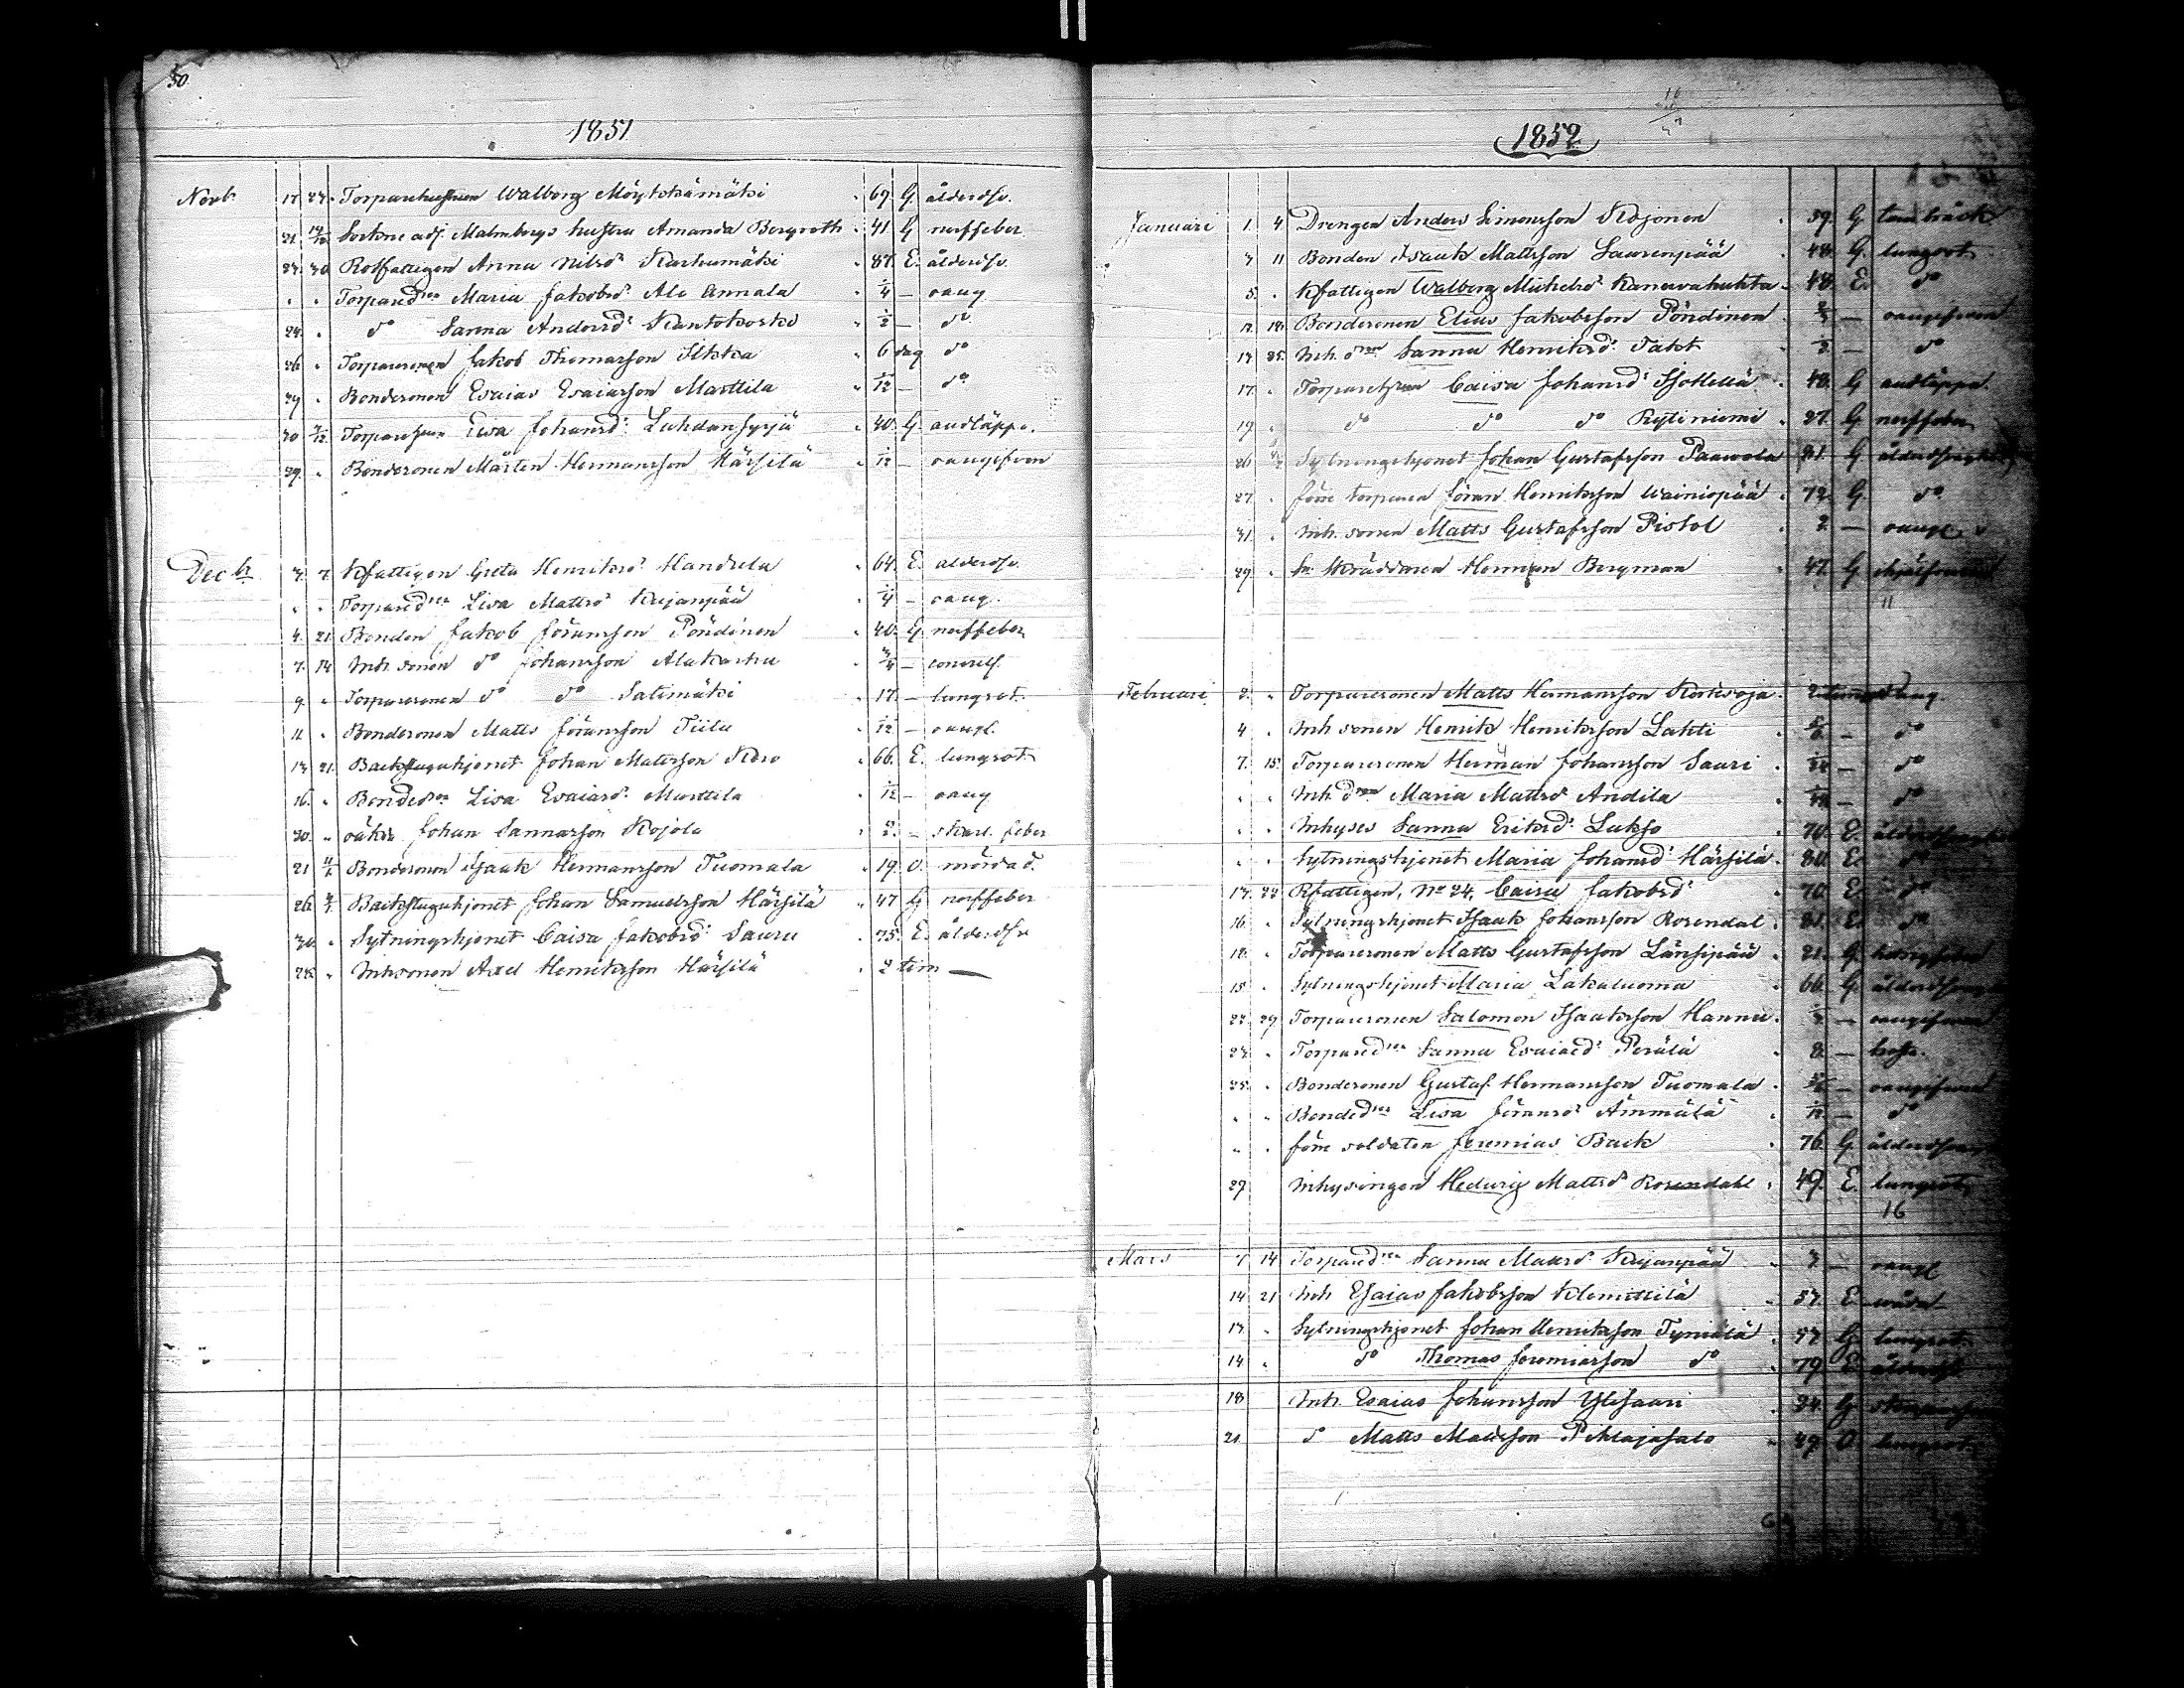 50
1851
Novb. 17 23. Torparehustrun Walborg Möykkämäki 69 G. ålderdsv.
21. 14/12 Sockne adj. Malmbergs hustru Amanda Bergroth 41 G nerffeber
23. 30 Rotfattigen Anna Nilsd: Karhumäki 87. E. ålderdsv.
" " Torpared:ren Maria Jakobsd: Ala Annala 1/4 — oang
24. " do Sanna Andersd: Kantokoski 1/2 — do
26 " Torparesonen Jakob Thomasson Ilkka 6 dag do
" Bondesonen Esaias Esaiasson Marttila 1/12 — do
30 Torparehrun Ewa Johansd: Luhdansyrjä 40. G. andtäppa.
29. " Bondesonen Mårten Hermansson Härsilä 1/12 — oangifven
Decb. 3. 7. Rfattigen Greta Henriksd: Mandula 64. E. ålderdsv.
" " Torpared:ren Lisa Mattsd: Kujanpää 1/4 — oang.
4. 21 Bonden Jakob Jöransson Pöndinen 40. G. nerffeber
7. 14 Inh sonen do Johansson Alakarhu 3/4 — convuls.
9. " Torparesonen do do Salimäki 17. — lungsot.
11. " Bondesonen Matts Jöransson Tiila 1/12 — oangf.
13 21. Backstuguhjonet Johan Mattsson Koso 66. E. lungsot
16. " Bonded:ren Lisa Esaiasd: Marttila 1/12 — oang
20. " oäkta Johan Sannasson Kojola 2. — skarl. feber
21 Bondesonen Isaak Hermansson Tuomala 19. O. mördad.
26. Backstuguhjonet Johan Samuelsson Härsilä 47 G nerffeber
30. " Sytningshjonet Caisa Jakobsd: Sauru 75. E. ålderdsv
28. " Inhsonen Axel Henriksson Härsilä 2 tim —
1852
Januari 1. 4. Drengen Anders Simonsson Kojonen 59. G
11 Bonden Isaak Mattsson Saarenpää 48. G. lungsot
5. " Rfattigen Walborg Michelsd: Kanervahuhta 48. E. do
18. Bondesonen Elias Jakobsson Pöndinen — oangifven
25. Inh. d:ren Sanna Henriksd: Takk — do
17. " Torparehrun Caisa Johansd: 48. G andtäppa.
19. " do do do Rytiniemi 27. G nerffeber
26 Sytningshjonet Johan Gustafsson Paavola 81. G
27. " förre torparen Jöran Henriksson Wainiopää 72. G. do
31. " Inh. sonen Matts Gustafsson Pistol 2. — oangf.
29. " Sn. Skräddaren Herman Bergman 47. G
11
Februari 2. " Torparesonen Matts Hermansson Koskioja oang.
4 " Inh sonen Henrik Henriksson Lahti — do
7. 15. Torparesonen Herman Johansson Sauri — do
" " Inh. d:ren Maria Mattsd: Andila — do
" " Inhyses Sanna Eriksd: Lukso 70. E.
" " Sytningshjonet Maria Johansd: Härsilä 80. E. do
13. 22 Rfattigen, No 24, Caisa Jakobsd: 70. E. do
16. " Sytningshjonet Isaak Johansson Rosendal 81. E. do
18. " Torparesonen Matts Gustafsson Länsipää 21. G.
15 " Sytningshjonet Maria Lakaluoma 66 G.
22. 29 Torparesonen Salomon Isaaksson Hannu — oangifven
23. " Torpared:ren Sanna Esaiaed: Perälä 8. — hosta.
25. " Bondesonen Gustaf Hermansson Tuomala — oangifven
" " Bonded:ren Lisa Jöransd: Ämmälä — do
" " förre soldaten Jeremias Back 76. G
29. Inhysingen Hedwig Mattsd: Rosendahl 49. E. lungsot
16
Mars 14 Torpared:ren Sanna Mattsd: Kujanpää — oangf
14 21 Inh Esaias Jakobsson Klemettilä 57 E
13. " Sytningshjonet Johan Henriksson Tyniälä G lungsot
14 " do Thomas Jeremiasson do 79 E
18. Inh. Esaias Johansson Ylisaari G
21 do Matts Mattsson Pihlajasalo O lungsot